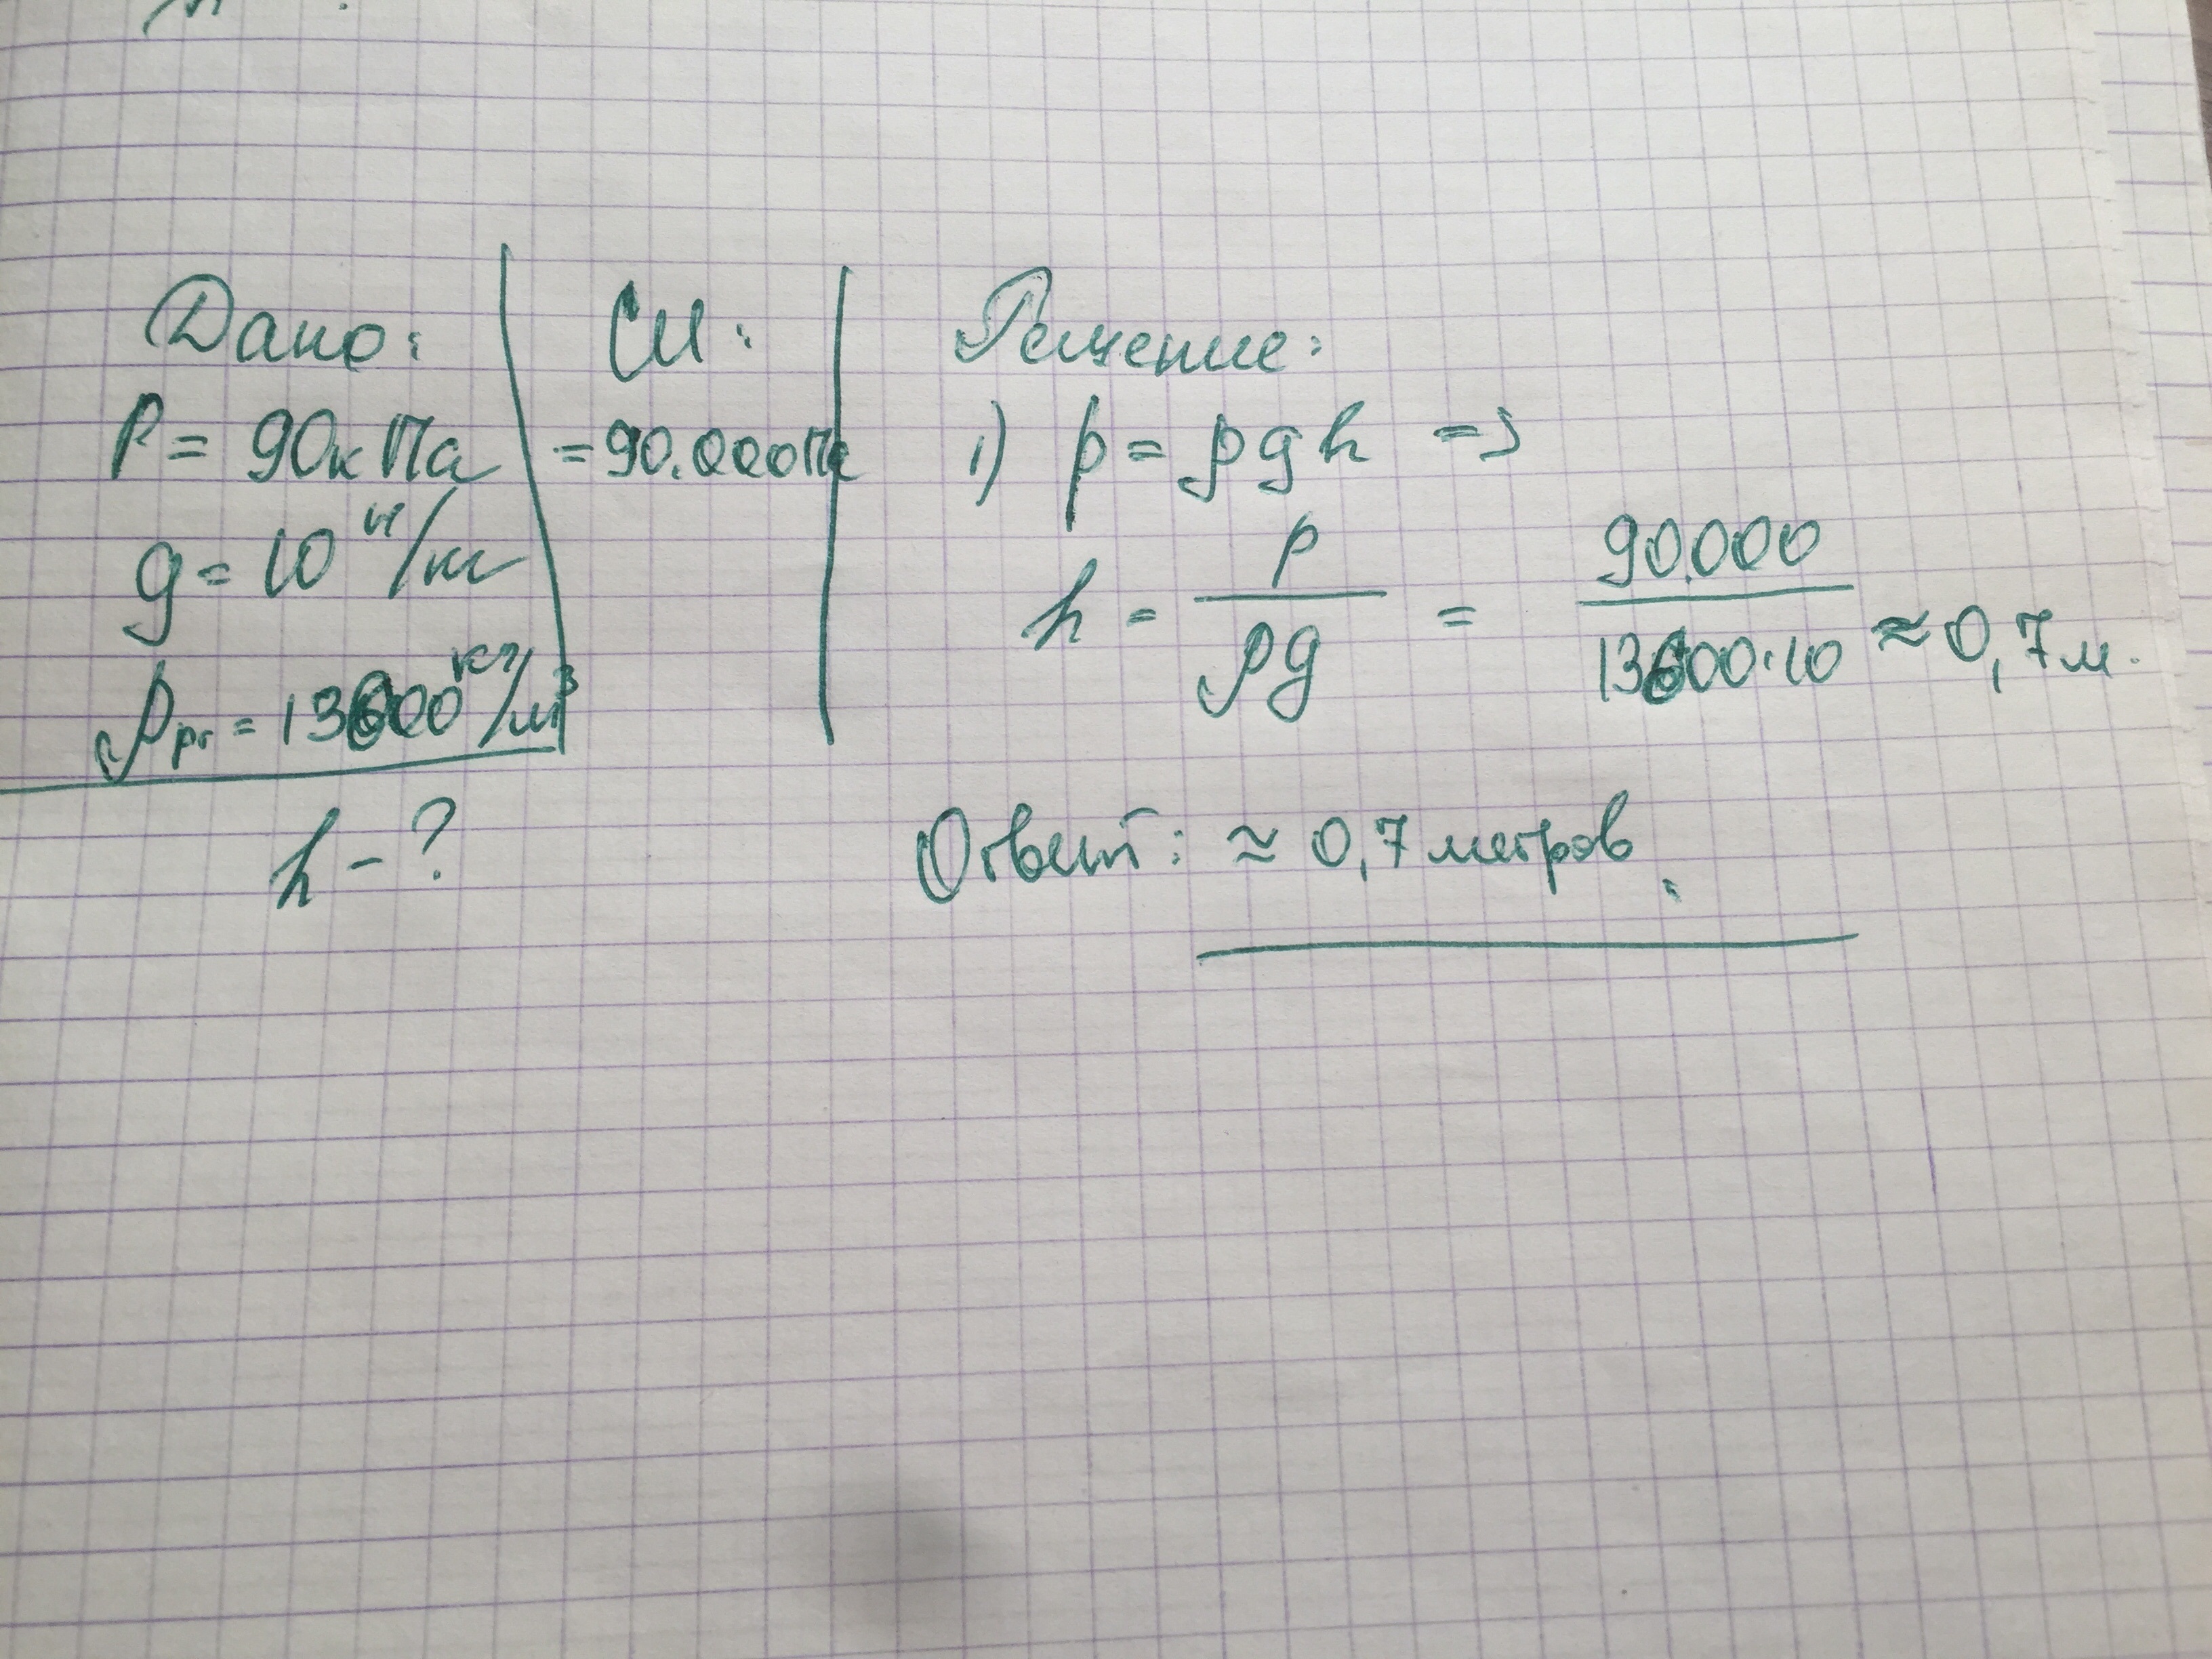 Дано:
P = 90кПа
g = 10 н/кг
ρрт = 13600 кг/м³
h - ?
СИ:
= 90.000Па
Решение:
1) p = ρgh =>
h = p/ρg = 90.000/13600·10 ≈ 0,7м.
Ответ: ≈ 0,7 метров.